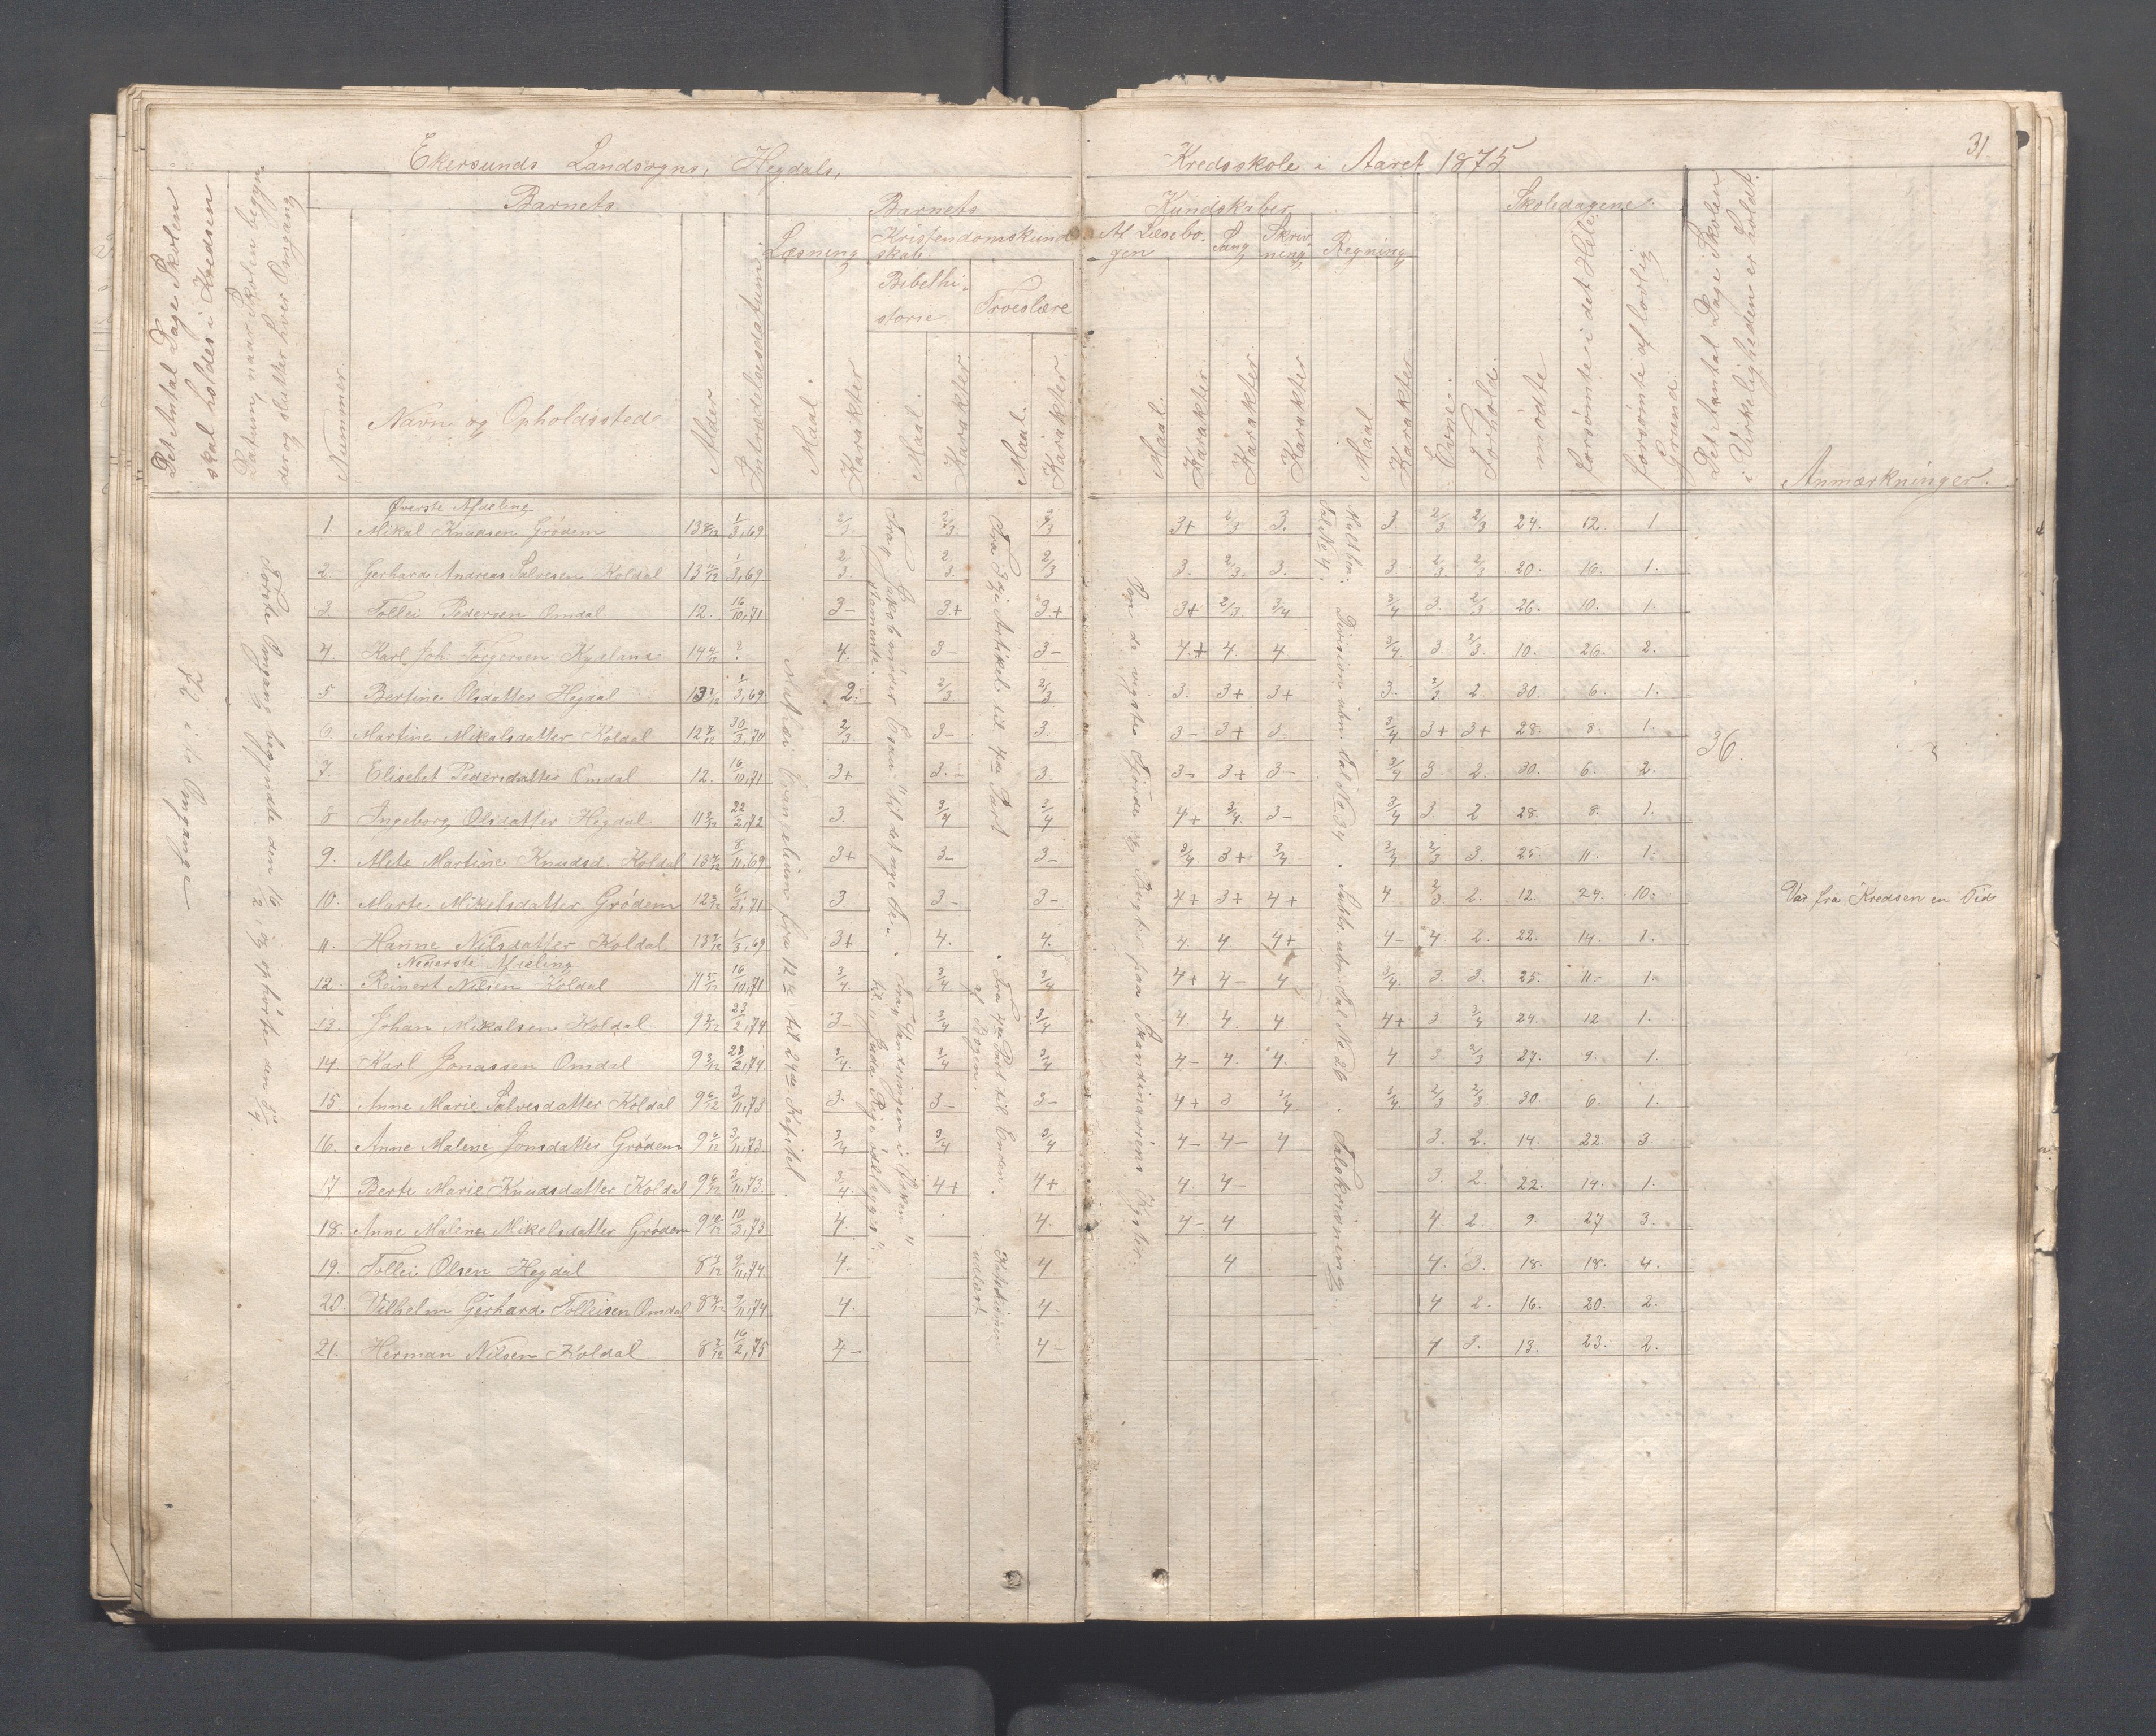 31
Ekersunds Landsogns, Hegdals, Kredsskole i Aaret 1875
Det Antal Dage Skolen skal holdes i Kredsen
Datum, naar Skolen begynder og slutter hver Omgang
Barnets
Nummer.
Navn og Opholdssted
Alder
Indtrædelsesdatum
Barnets Kundskaber
Læsning
Maal.
Karakter
Kristendomskundskab.
Bibelhistorie
Maal.
Karakter.
Troeslære
Maal.
Karakter
Af Læsebogen
Maal.
Karakter
Sang
Karakter
Skrivning
Karakter
Regning
Maal
Karakter
Evne.
Forhold.
Skoledagene.
mødte
forsømte i det Hele
forsømte af lovlig Grund.
Det Antal Dage Skolen i Virkeligheden er holdt.
Anmærkninger.
Øverste Afdeling
1. Mikal Knudsen Grødem 1/3,69 2/3 2/3 2/3 3+ 2/3 3. 3. 2/3 2/3 24. 12. 1
2. Gerhard Andreas Salvesen Koldal 1/3,69 2/3. 2/3. 2/3 3. 2/3. 3. 3 2/3. 2/3 20. 16. 1.
3. Tollei Pedersen Omdal 12. 16/10,71 3- 3+ 3+ 3+ 2/3 3/4 3/4 3. 2/3 26. 10. 1.
4. Karl Joh. Torgersen ? 4. 3- 3- 4.+ 4. 4 3/4 3. 2/3. 10. 26. 2.
5 Bertine Olsdatter Hegdal 1/3,69 2. 2/3 2/3 3. 3+ 3+ 3. 2/3 2. 30. 6. 1.
6. Martine Mikalsdatter Koldal 30/3,70 2/3 3- 3. 3- 3+ 3 3/4 3+ 3+ 28. 8. 1.
7. Elisabet Pedersdatter Omdal 12. 16/10,71 3+ 3.- 3 3- 3+ 3- 3/4 3. 2. 30. 6. 2.
8 Ingeborg Olsdatter Hegdal 22/2,72 3. 3/4 3/4 4+ 3/4. 3- 3/4 3. 2 28. 8. 1.
9. Alete Martine Knudsd. Koldal 8/11,69 3+ 3- 3- 3/4 3+ 3/4. 3/4 2/3 3. 25. 11. 1.
10. Marte Mikelsdatter Grødem 6/3,71 3 3- 3- 4+ 3+ 4+ 4 2/3 2. 12. 24. 10. Var fra Kredsen en Tid
11. Hanne Nilsdatter Koldal 1/3,69 3+ 4. 4. 4 4 4+ 4- 4 2. 22. 14. 1.
Nederste Afdeling
12. Reinert Nilsen Koldal 16/10,71 3/4 3/4 3/4 4+ 4- 4 3/4. 3 3. 25. 11. 1.
13. Johan Mikalsen Koldal 23/2,74 3- 3/4 3/4 4. 4. 4 4+ 3. 3/4 24. 12 1.
14. Karl Jonassen Omdal 23/2,74. 3/4. 3/4 3/4 4- 4. 4. 4 3 2/3 27. 9. 1.
15 Anne Marie Salvesdatter Koldal 3/11,73 3. 3- 3- 4+ 3 3/4 3/4 2/3 2/3 30. 6. 1.
16. Anne Malene Jonsdatter Grødem 3/11,73. 3/4 3/4 3/4 4- 4- 4 3. 2. 14. 22. 3
17 Berte Marie Knudsdatter Koldal 3/11,73. 3/4. 4+ 4+ 4. 4- 3. 2. 22. 14. 1.
18. Anne Malene Mikelsdatter Grødem 10/3,73 4. 4. 4- 4 4. 2. 9. 27 3.
19. Tollei Olsen Hegdal 9/11,74. 4. 4. 4 4. 3. 18. 18. 4.
20. Vilhelm Gerhard Tolleisen Omdal 9/11,74 4. 4. 4 2. 16. 20. 2.
21. Herman Nilsen Koldal 16/2,75 4- 4- 4 3. 13. 23. 2.
72 i to Omgange
Første Omgang begyndte den 16/2, og ophørte den
Evangelium fra 12te til 24de Kapitel.
Fra "Jakob møder Esau" til det nye Testamente.
Fra "Vandringen i Ørken" til "Juda Rige ødelægges".
Fra 3dje Artikel til 4de Part
Fra 4de Part til Enden af Bogen.
udlært
De vigste Fjorde og Bugter paa Skandinaviens Kyster.
Division ubn. Tal No 34. Subtr. ubn. Tal No 26. Talskrivning.
36.